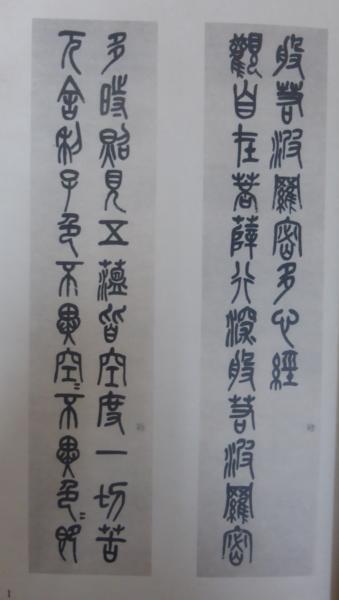 般若波羅密多心經
觀自在菩薩行深般若波羅密
多時照見五蘊皆空度一切苦
厄舍利子色不異空=不異色=即
1